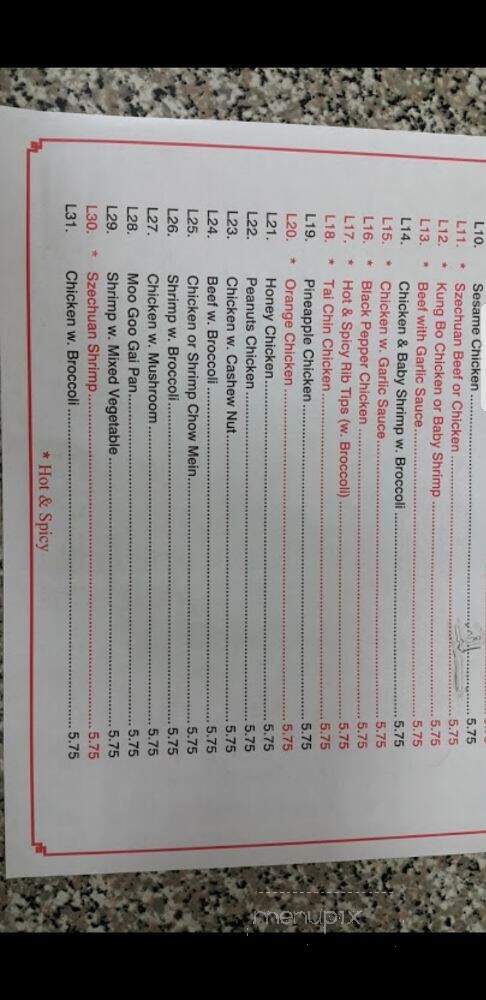 L10. Sesame Chicken 5.75
L11. * Szechuan Beef or Chicken 5.75
L12. * Kung Bo Chicken or Baby Shrimp 5.75
L13. * Beef with Garlic Sauce 5.75
L14. Chicken & Baby Shrimp w. Broccoli 5.75
L15. * Chicken w. Garlic Sauce 5.75
L16. * Black Pepper Chicken 5.75
L17. * Hot & Spicy Rib Tips (w. Broccoli) 5.75
L18. * Tai Chin Chicken 5.75
L19. Pineapple Chicken 5.75
L20. * Orange Chicken 5.75
L21. Honey Chicken 5.75
L22. Peanuts Chicken 5.75
L23. Chicken w. Cashew Nut 5.75
L24. Beef w. Broccoli 5.75
L25. Chicken or Shrimp Chow Mein 5.75
L26. Shrimp w. Broccoli 5.75
L27. Chicken w. Mushroom 5.75
L28. Moo Goo Gai Pan 5.75
L29. Shrimp w. Mixed Vegetable 5.75
L30. * Szechuan Shrimp 5.75
L31. Chicken w. Broccoli 5.75
* Hot & Spicy
menupix